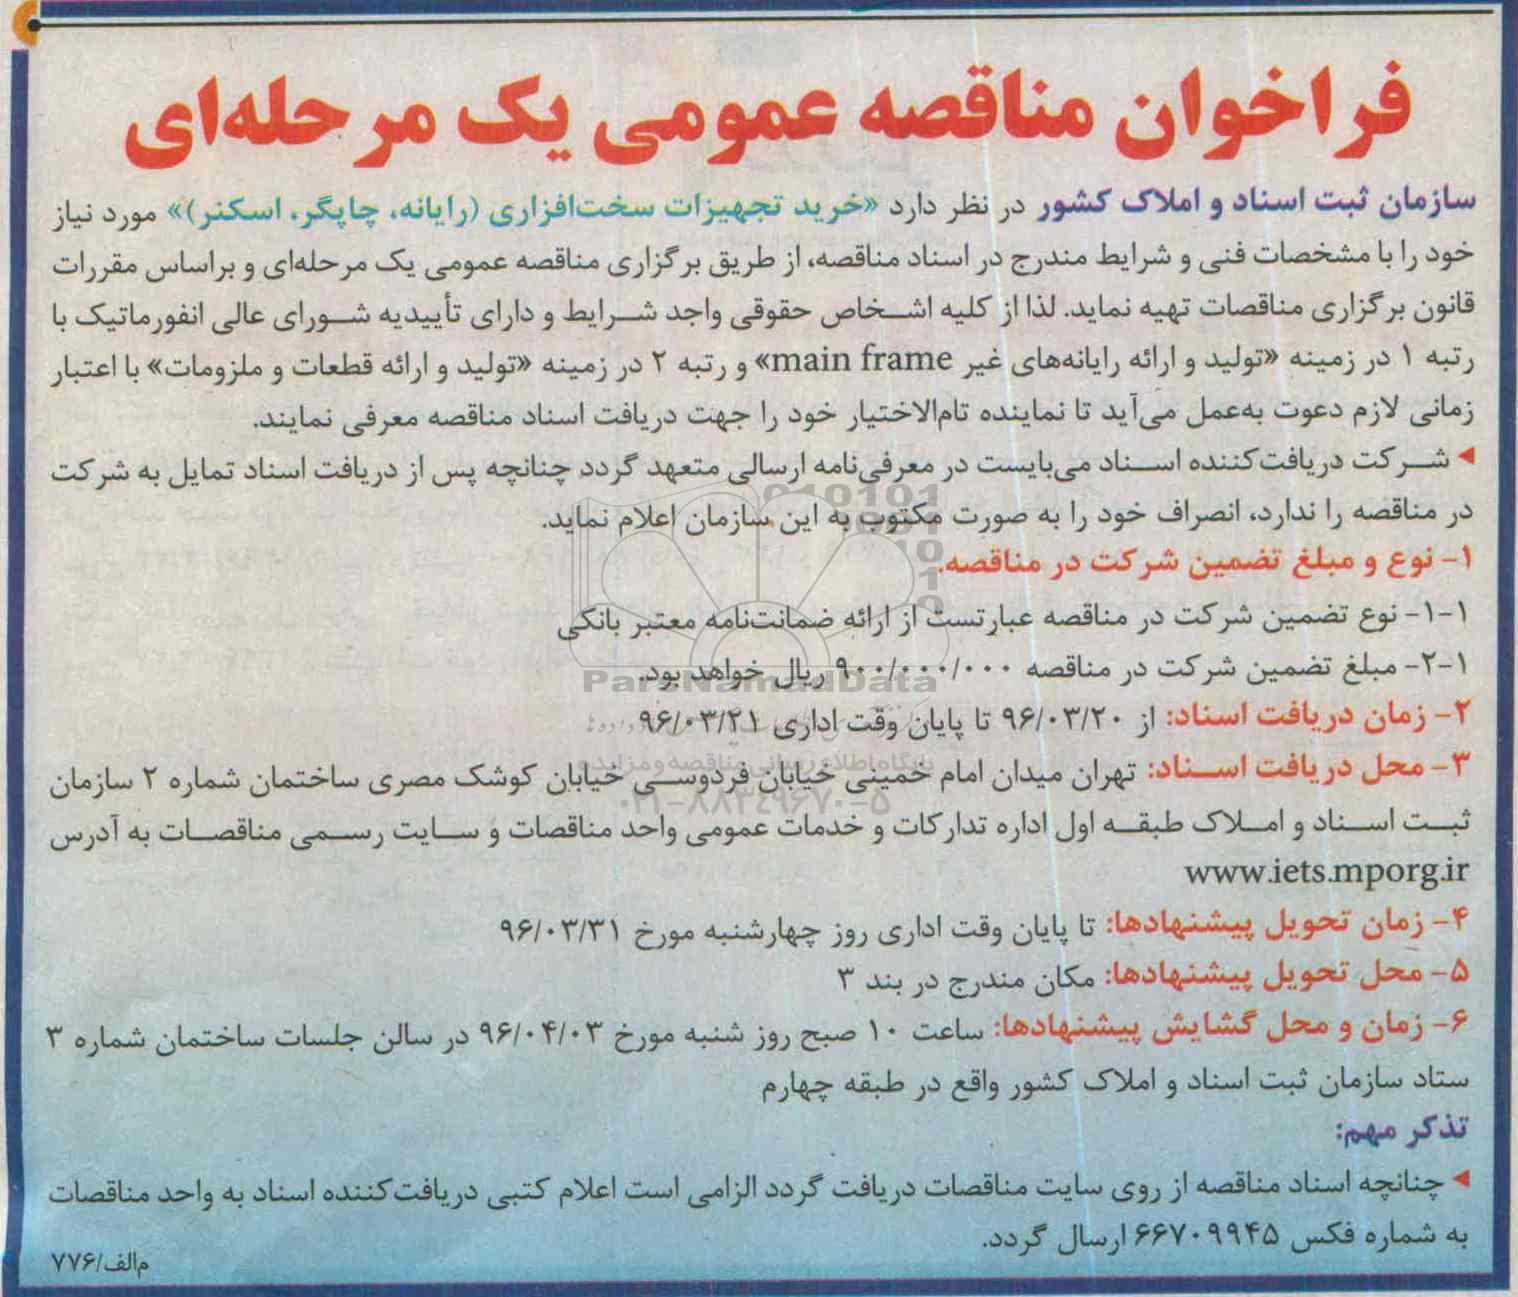 فراخوان مناقصه عمومی یک مرحله‌ای
سازمان ثبت اسناد و املاک کشور در نظر دارد «خرید تجهیزات سخت‌افزاری (رایانه، چاپگر، اسکنر)» مورد نیاز
خود را با مشخصات فنی و شرایط مندرج در اسناد مناقصه، از طریق برگزاری مناقصه عمومی یک مرحله‌ای و براساس مقررات
قانون برگزاری مناقصات تهیه نماید. لذا از کلیه اشخاص حقوقی واجد شرایط و دارای تأییدیه شورای عالی انفورماتیک با
رتبه ۱ در زمینه «تولید و ارائه رایانه‌های غیر main frame» و رتبه ۲ در زمینه «تولید و ارائه قطعات و ملزومات» با اعتبار
زمانی لازم دعوت به‌عمل می‌آید تا نماینده تام‌الاختیار خود را جهت دریافت اسناد مناقصه معرفی نمایند.
شرکت دریافت‌کننده اسناد می‌بایست در معرفی‌نامه ارسالی متعهد گردد چنانچه پس از دریافت اسناد تمایل به شرکت
در مناقصه را ندارد، انصراف خود را به صورت مکتوب به این سازمان اعلام نماید.
۱- نوع و مبلغ تضمین شرکت در مناقصه.
۱-۱- نوع تضمین شرکت در مناقصه عبارتست از ارائه ضمانت‌نامه معتبر بانکی
۲-۱- مبلغ تضمین شرکت در مناقصه ۹۰۰/۰۰۰/۰۰۰ ریال خواهد بود.
ParsNamadData
۲- زمان دریافت اسناد: از ۹۶/۰۳/۲۰ تا پایان وقت اداری ۹۶/۰۳/۲۱
پایگاه اطلاع رسانی مناقصه و مزایده
۳- محل دریافت اسناد: تهران میدان امام خمینی خیابان فردوسی خیابان کوشک مصری ساختمان شماره ۲ سازمان
۰۲۱-۸۸۳۴۹۶۷۰-۵
ثبت اسناد و املاک طبقه اول اداره تدارکات و خدمات عمومی واحد مناقصات و سایت رسمی مناقصات به آدرس
www.iets.mporg.ir
۴- زمان تحویل پیشنهادها: تا پایان وقت اداری روز چهارشنبه مورخ ۹۶/۰۳/۳۱
۵- محل تحویل پیشنهادها: مکان مندرج در بند ۳
۶- زمان و محل گشایش پیشنهادها: ساعت ۱۰ صبح روز شنبه مورخ ۹۶/۰۴/۰۳ در سالن جلسات ساختمان شماره ۳
ستاد سازمان ثبت اسناد و املاک کشور واقع در طبقه چهارم
تذکر مهم:
چنانچه اسناد مناقصه از روی سایت مناقصات دریافت گردد الزامی است اعلام کتبی دریافت‌کننده اسناد به واحد مناقصات
به شماره فکس ۶۶۷۰۹۹۴۵ ارسال گردد.
م‌الف/۷۷۶